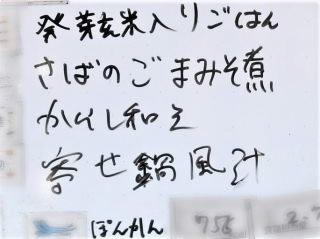 発芽玄米入りごはん
さばのごまみそ煮
からし和え
寄せ鍋風汁
ぽんかん 756